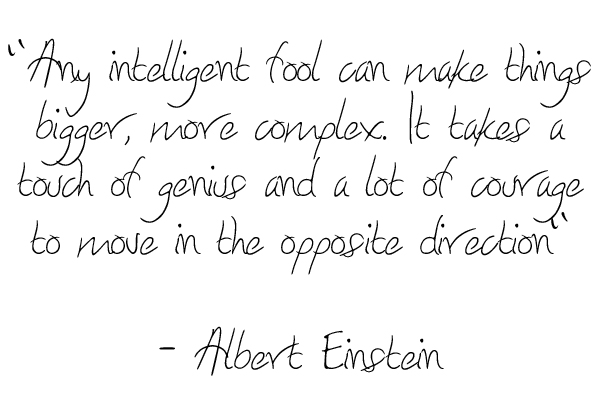 “Any intelligent fool can make things
bigger, more complex. It takes a
touch of genius and a lot of courage
to move in the opposite direction“
- Albert Einstein